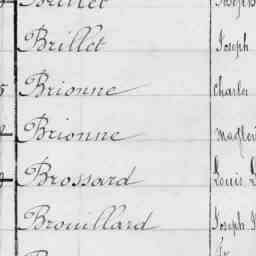 Brillet Joseph
Brillet Joseph
Brionne charles
Brionne magloi
Brossard Louis L
Brouillard Joseph